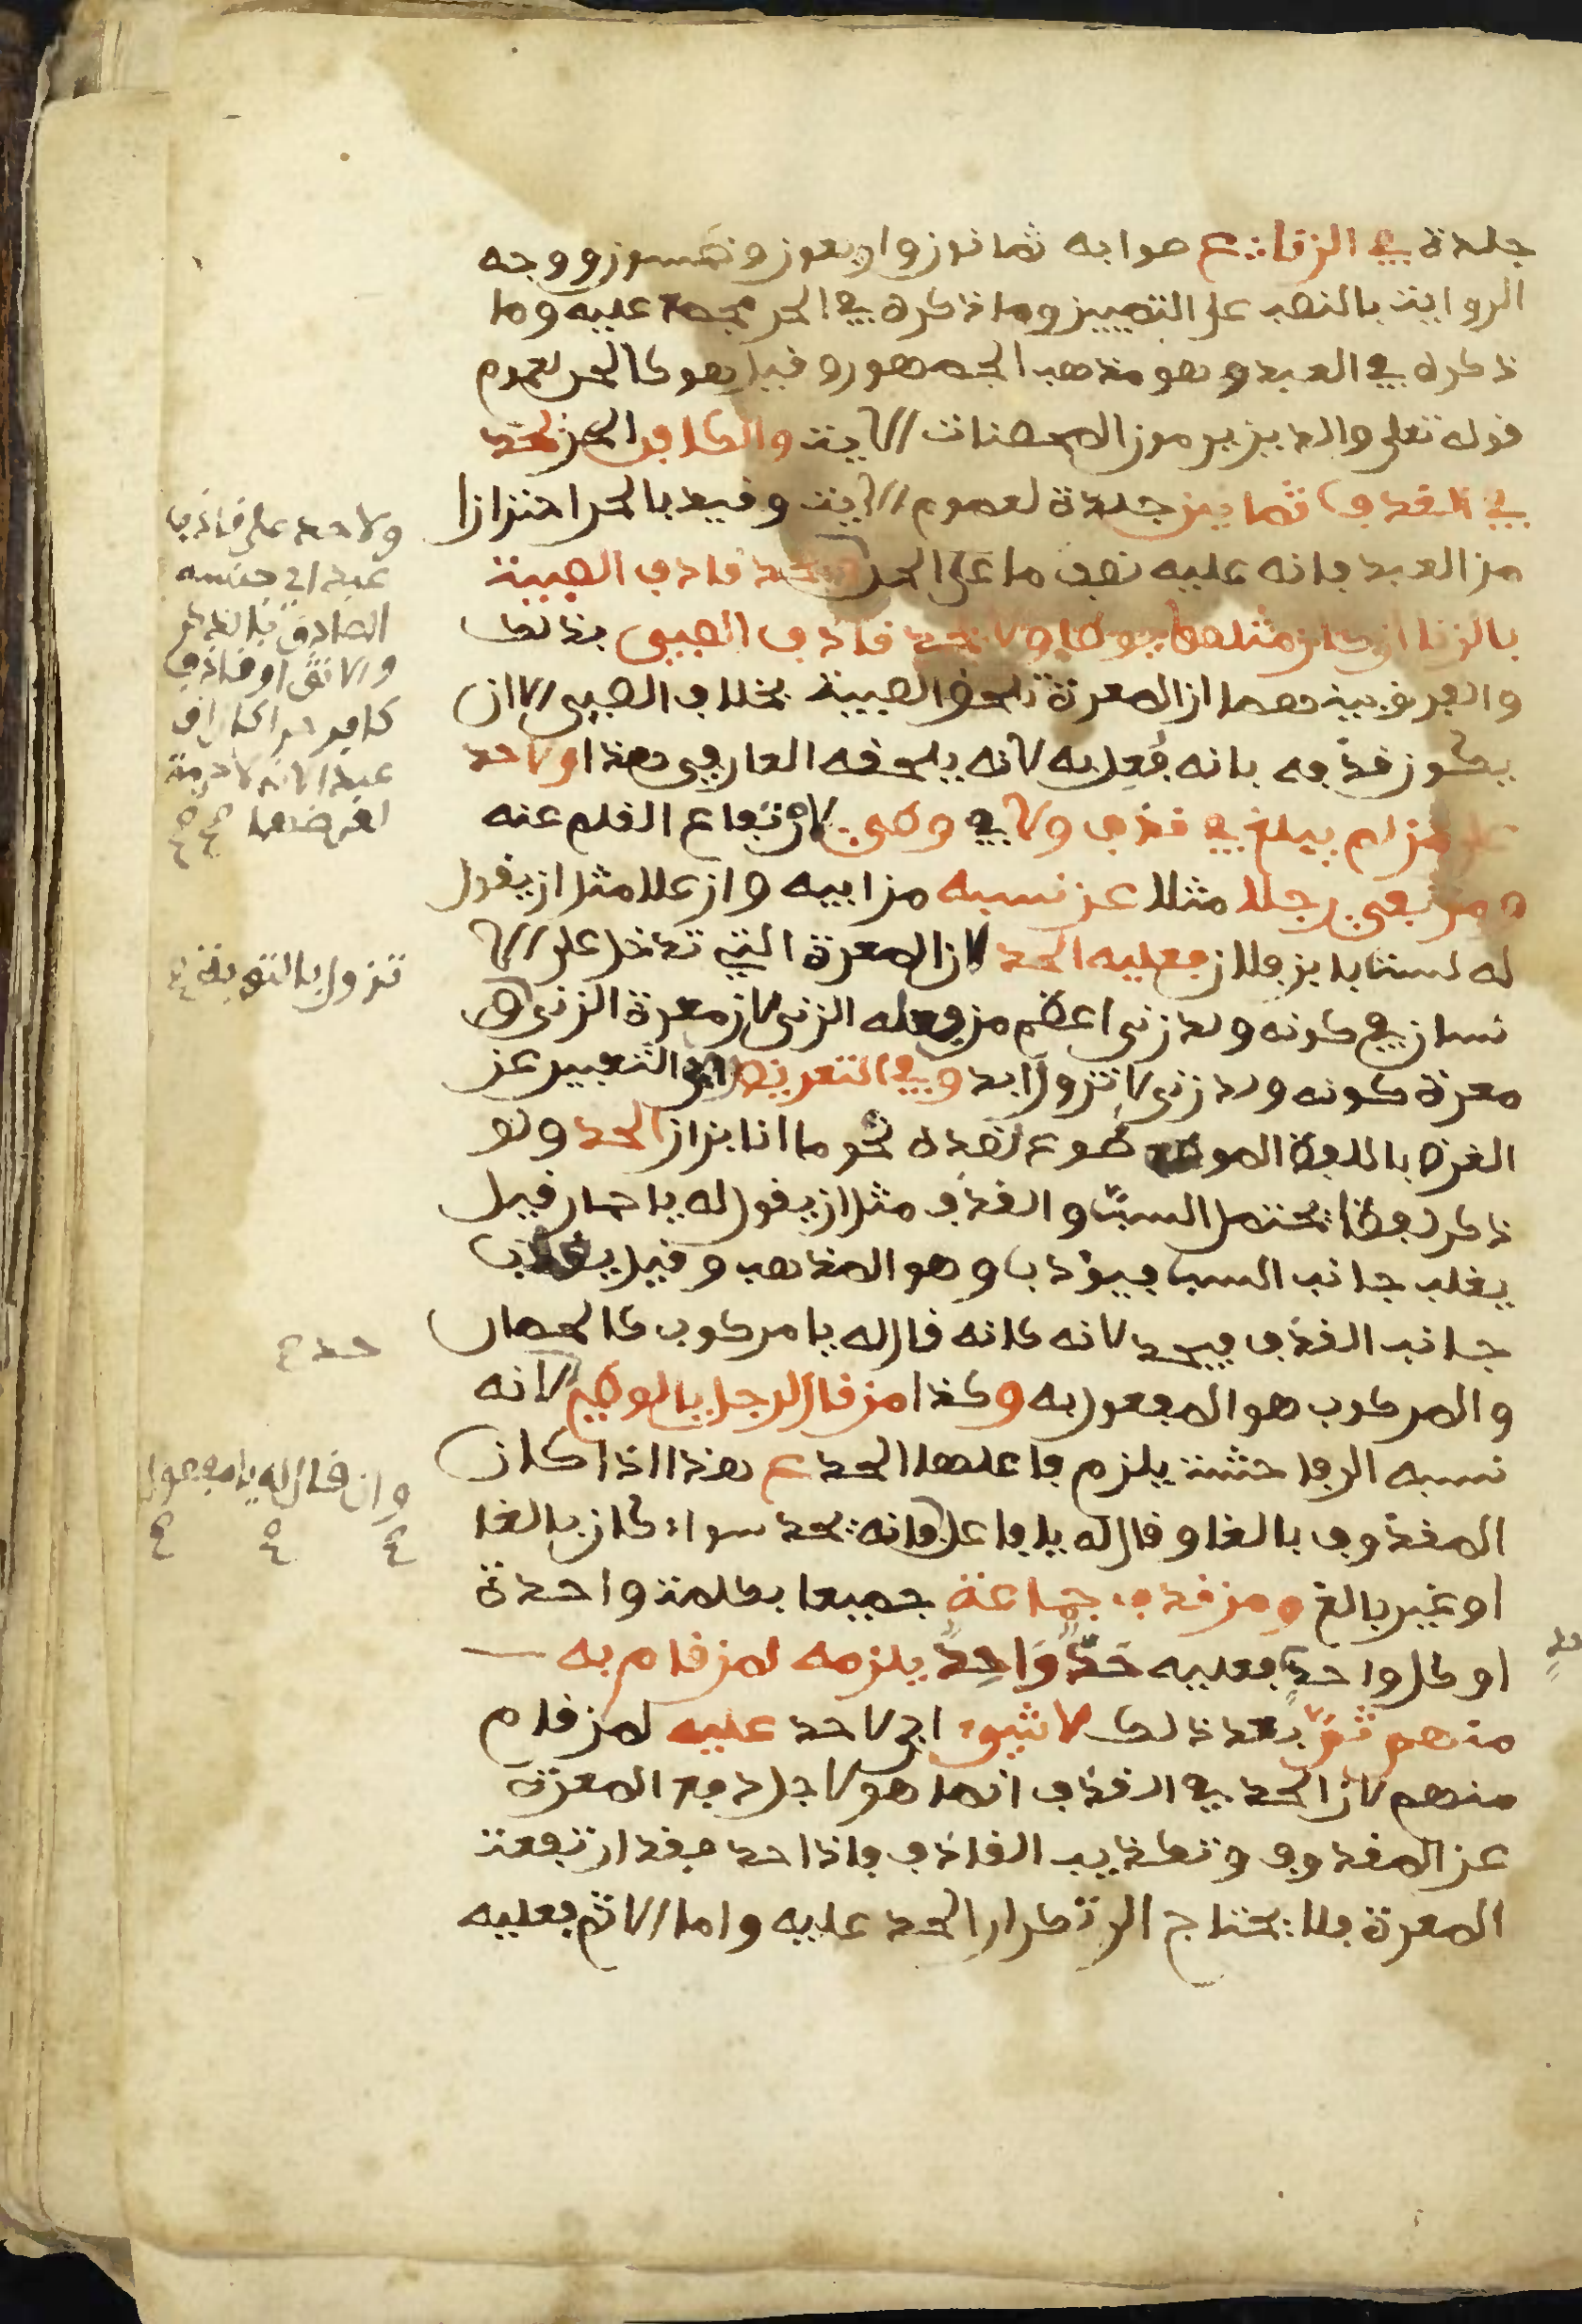 جلدة في الزنا ع صوابه ثمانون واربعون وخمسون ووجه
الرواية بالنصب على التمييز وما ذكره في الحر مجمع عليه وما
ذكره في العبد وهو مذهب الجمهور وقيل هو كالحر لعموم
قوله تعلى والذين يرمون المحصنات الآية والكافر الحر يحد
في القذف ثمانين جلدة لعموم الآية وقيد بالحر احترازا
من العبد فانه عليه نصف ما على الحر ويحد قاذف الصبية
بالزنا ان كان مثلها يوطا ولا يحد قاذف الصبي بذلك
والفرق بينهما ان المعرة تلحق الصبية بخلاف الصبي الا ان
يكون قذفه بانه فُعِل به لانه يلحقه العار في هذا ولا حد
على من لم يبلغ في قذف ولا في وطئ لارتفاع القلم عنه
ومن نفى رجلا مثلا عن نسبه من ابيه وان علا مثل ان يقول
له لست بابن فلان فعليه الحد لان المعرة التي تدخل على الا
نسان في كونه ولد زنى اعظم من فعله الزنى لان معرة الزنى
معرة كونه ولد زنى لا تزول ابد وفي التعريض اي التعبير عن
الغرض باللفظ الموضوع لضده نحو ما انا بزان الحد ولو
ذكر لفظا يحتمل السبّ والقذف مثل ان يقول له يا حمار قيل
يغلب جانب السب فيؤدب وهو المذهب وقيل يغلب
جانب القذف فيحد لانه كانه قال له يا مركوب كالحصان
والمركوب هو المفعول به وكذا من قال لرجل يا لوطي لانه
نسبه الى فاحشة يلزم فاعلها الحد ع هذا اذا كان
المقذوف بالغا وقال له يا فاعل فانه يحد سواء كان بالغا
او غير بالغ ومن قذف جماعة جميعا بكلمة واحدة
او كل واحدٍ فعليه حَدٌّ وَاحِدٌ يلزمه لمن قام به
منهم ثمّ بعد ذلك لا شيء اي لا حد عليه لمن قام
منهم لان الحد في القذف انما هو لاجل دفع المعرة
عن المقذوف وتكذيب القاذف فاذا حد فقد ارتفعت
المعرة فلا يحتاج الى تكرار الحد عليه واما الاثم فعليه
ولا حد على قاذف
عبد اي جنسه
الصادق بالذكر
والانثى او قاذف
كافر حرا كان او
عبدا لانه لا حرمة
لعرضهما
تزول بالتوبة
حد ع
وان قال له يا مفعول